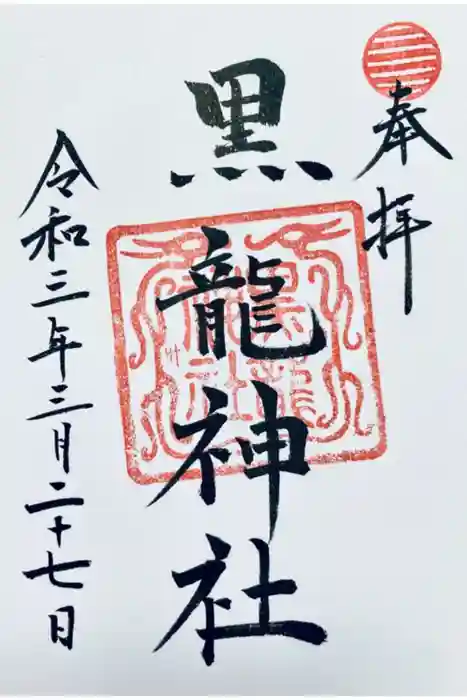 奉拝
黒龍神社
令和三年三月二十七日